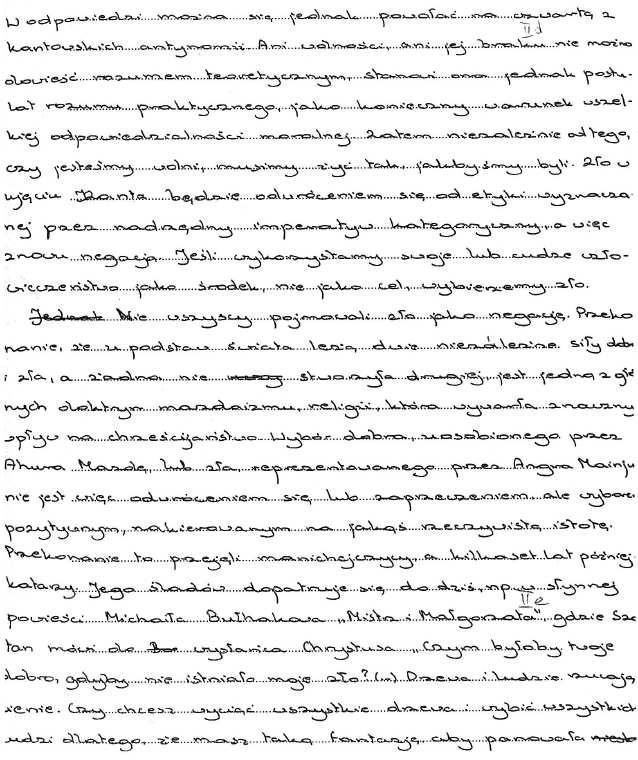 W odpowiedzi można się jednak powołać na czwartą z
II d
kantowskich antynomii. Ani wolności, ani jej braku nie można
dowieść rozumem teoretycznym, stanowi ona jednak postu-
lat rozumu praktycznego, jako konieczny warunek wszel-
kiej odpowiedzialności moralnej. Zatem niezależnie od tego,
czy jesteśmy wolni, musimy żyć tak, jakbyśmy byli. Zło w
ujęciu Kanta będzie odwróceniem się od etyki wyznacza-
nej przez nadrzędny imperatyw kategoryczny, a więc
znowu negacją. Jeśli wykorzystamy swoje lub cudze czło-
wieczeństwo jako środek, nie jako cel, wybierzemy zło.
Jednak Nie wszyscy pojmowali zło jako negację. Przeko
nanie, że u podstaw świata leżą dwie niezależne siły dobr
i zła, a żadna nie stworzyła drugiej, jest jedną z głó
nych doktryn mazdaizmu, religii, która wywarła znaczny
wpływ na chrześcijaństwo. Wybór dobra, uosobionego przez
Ahura Mazdę, lub zła, reprezentowanego przez Angra Mainju
nie jest więc odwróceniem się lub zaprzeczeniem ale wybore
pozytywnym, nakierowanym na jakąś rzeczywistą istotę.
Przekonanie to przejęli manichejczycy, a kilkaset lat później
katarzy. Jego śladów dopatruje się do dziś, np. w słynnej
II e
powieści Michaiła Bułhakowa „Mistrz i Małgorzata", gdzie Sza
tan mówi do wysłannika Chrystusa „Czym byłoby twoje
dobro, gdyby nie istniało moje zło? (...) Drzewa i ludzie rzucają
ienie. Czy chcesz wyciąć wszystkie drzewa i wybić wszystkich
udzi dlatego, że masz taką fantazję, aby panowała